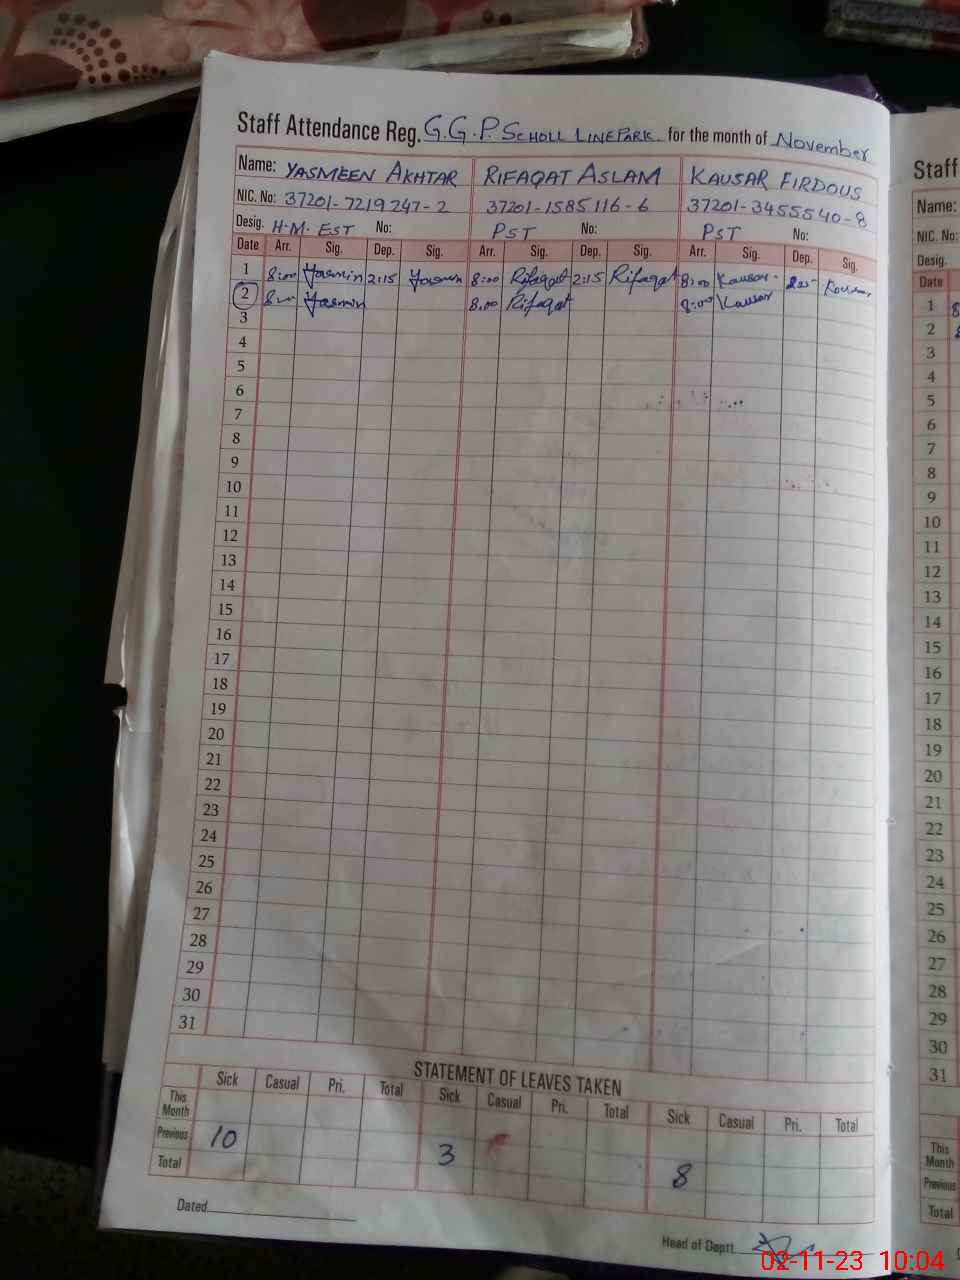 Staff Attendance Reg. G.G.P. SCHOLL LINEPARK for the month of November
Name: YASMEEN AKHTAR RIFAQAT ASLAM KAUSAR FIRDOUS
NIC. No: 37201-7219247-2 37201-1585116-6 37201-3455540-8
Desig. H.M. EST No: PST No: PST No:
Date Arr. Sig. Dep. Sig. Arr. Sig. Dep. Sig. Arr. Sig. Dep. Sig.
1 8:00 Yasmin 2:15 Yasmin 8:00 Rifaqat 2:15 Rifaqat 8:00 Kausar Kausar
2 Yasmin 8.00 Rifaqat 8:00 Kausar
3
4
5
6
7
8
9
10
11
12
13
14
15
16
17
18
19
20
21
22
23
24
25
26
27
28
29
30
31
STATEMENT OF LEAVES TAKEN
Sick Casual Pri. Total Sick Casual Pri. Total Sick Casual Pri. Total
This Month
Previous 10 3 8
Total
Dated
Head of Deptt
Staff
Name:
NIC. No:
Desig.
Date
1 8
2
3
4
5
6
7
8
9
10
11
12
13
14
15
16
17
18
19
20
21
22
23
24
25
26
27
28
29
30
31
This Month
Previous
Total
02-11-23 10:04